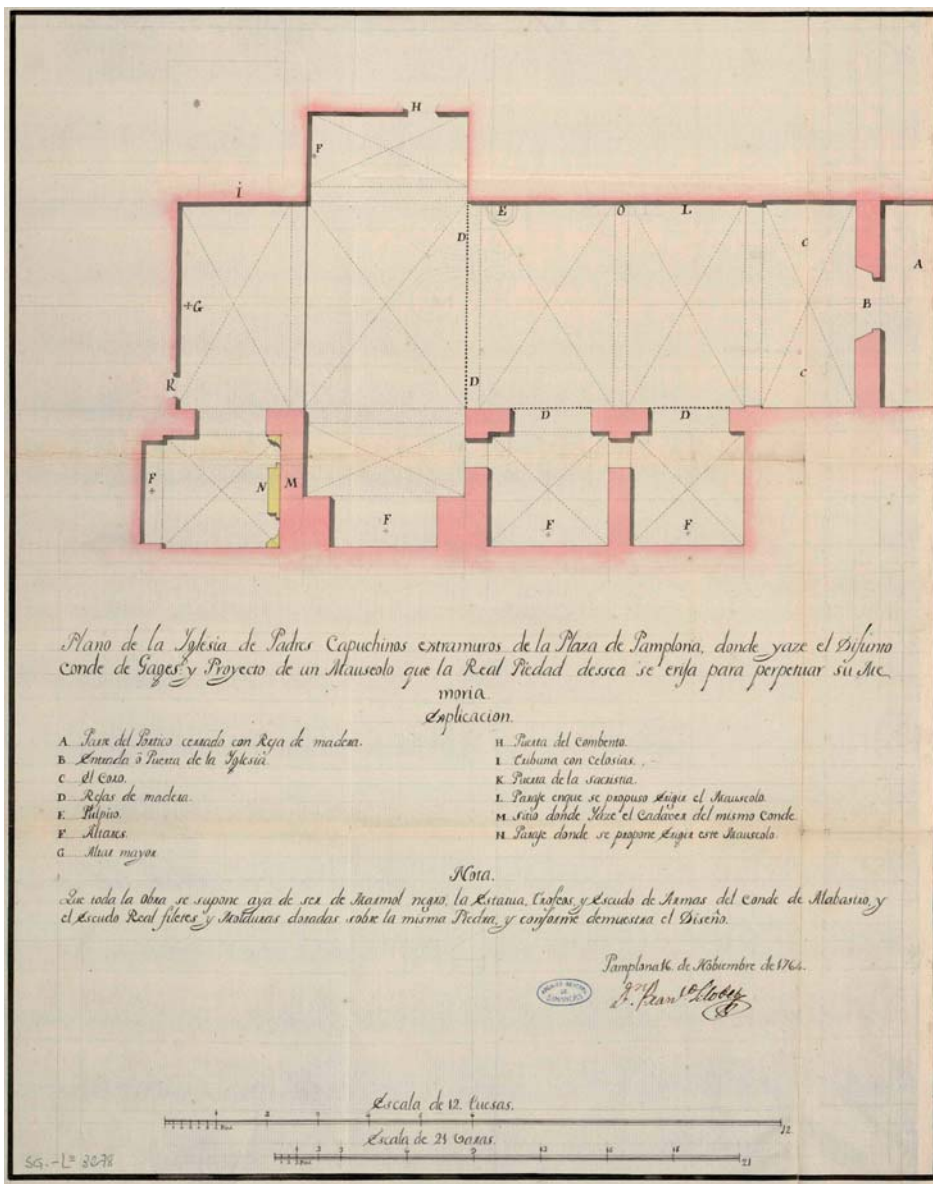 H
F
I
E O L
D C A
G B
K D C
D D
F N M
F F F
Plano de la Yglesia de Padres Capuchinos extramuros de la Plaza de Pamplona, donde yaze el Difunto
Conde de Gages, y Proyecto de un Mauseolo que la Real Piedad dessea se erija para perpetuar su Me
moria.
Explicacion.
A Parte del Portico cerrado con Reja de madera.
B Entrada ò Puerta de la Yglesia.
C El Coro.
D Rejas de madera.
E Pulpito.
F Altares.
G Altar mayor
H Puerta del Combento.
I. Tribuna con Celosias.
K Puerta de la sacristia.
L Paraje enque se propuso Erigir el Mauseolo.
M sitio donde Yaze el Cadaver del mismo Conde.
N Paraje donde se propone Erigir este Mauseolo.
Nota.
Que toda la Obra se supone aya de ser de Marmol negro, la Estatua, Trofeos, y Escudo de Armas del Conde de Alabastro, y
el Escudo Real filetes, y Molduras doradas sobre la misma Piedra, y conforme demuestra el Diseño.
Pamplona 16. de Nobiembre de 1764.
Dn. Franco Llobet
Escala de 12. Tuesas.
12
Escala de 21 Varas.
21
SG.-Lº 3278